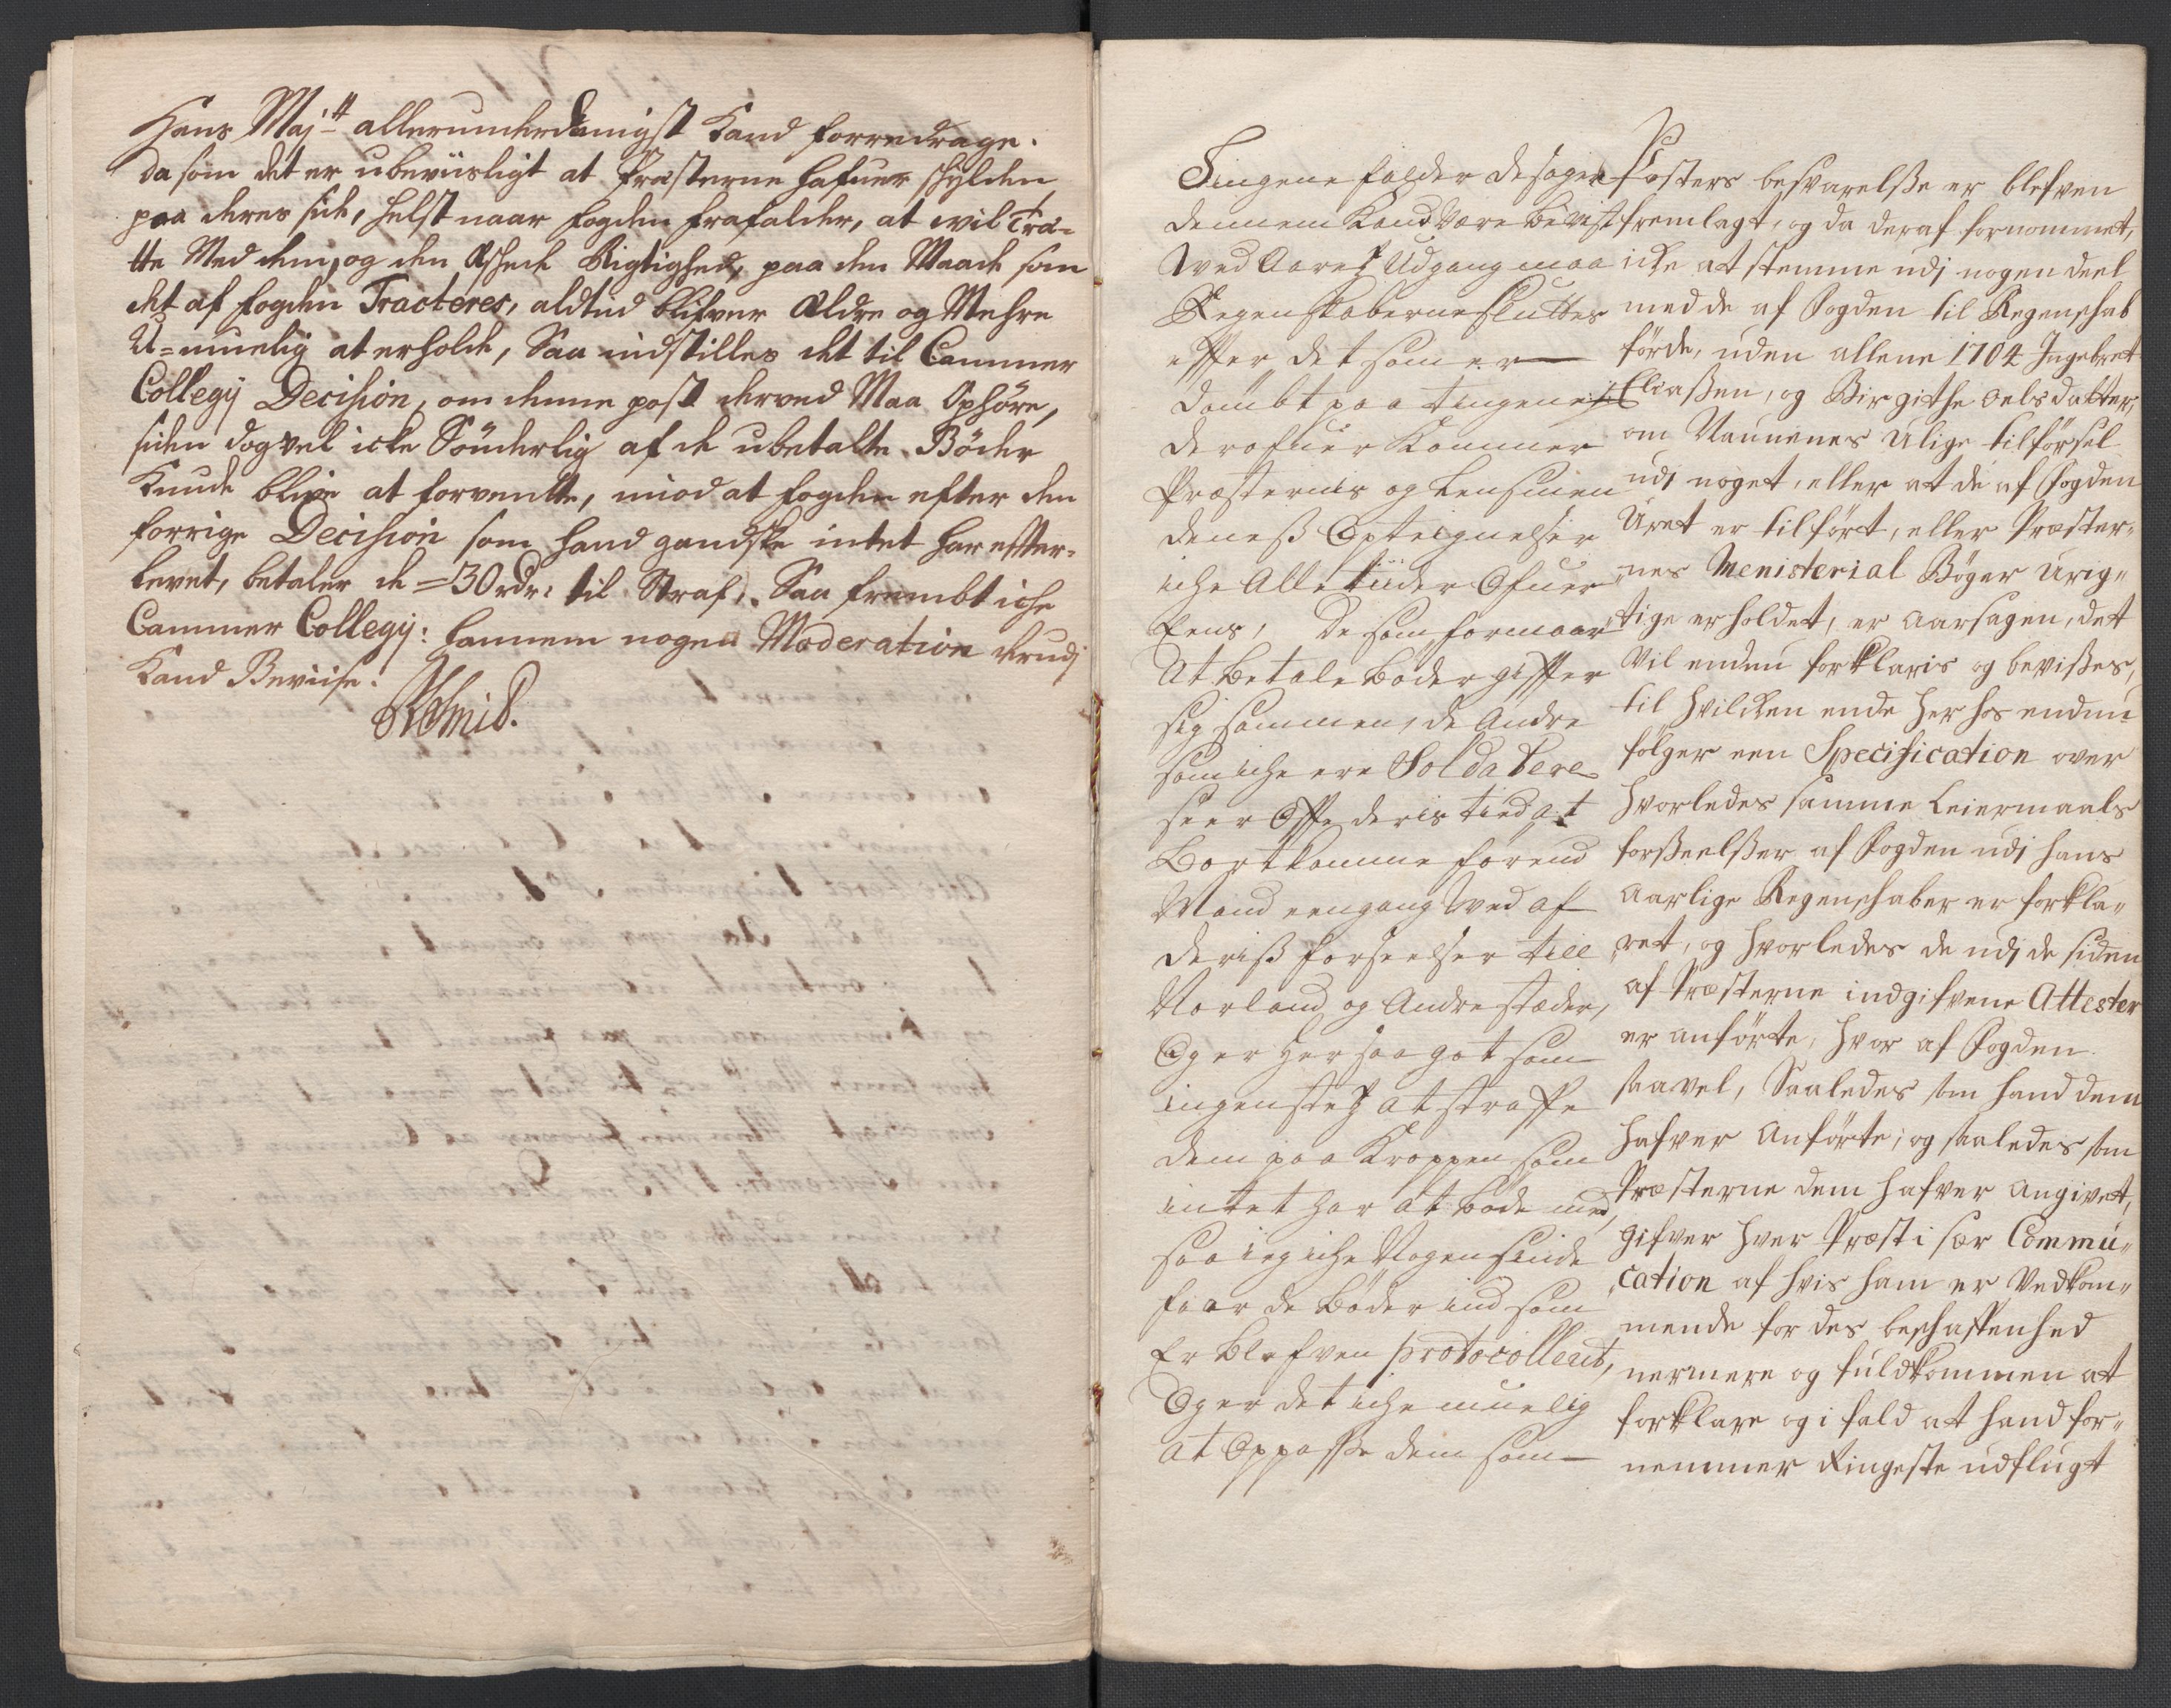 Hans Maj.tt allerunderdanigst Kand forredrage.
da som det er ubeviisligt at Præsterne hafuer skylden
paa deres side, helst naar fogden frafalder, at vil Træ-
tte Med dem, og den Æskede Rigtighed, paa den Maade som
det af fogden Tracteres, aldtid blifver Ældre og Mehre
U=muelig at erholde, Saa indstilles det til Cammer
Collegij Decision, om denne post derved Maa Ophöre,
siden dog vel icke Sönderlig af de ubetalte Böder
Kunde blive at forvendte, imod at fogden efter den
forrige Decision som hand gandske intet har efter-
levet, betaler de =30 rdr: til Straf, Saa frembt iche
Cammer Collegij: hannem nogen Moderation derudj
Kand Beviise.
Schmid.
Tingene falder de sager
dennem Kand være bevist
Wed Aaretz Udgang maa
Regenskaberne sluttes
effter det som er
dömbt paa tingene
derofuer Kommer
Præsternis og Lensmen
deness Opteignelser
iche Alle tiider Ofuer
Eens, De som formaar
At betale böder giffter
sig sammen, de Andre
som iche ere Soldatere
seer Offte deris tied at
Bortkomme förend
Mand eengang Wed af
deriss forseelser till
Norland og Andre stæder,
Og er her saa got som
ingenstetz at straffe
dem paa Kroppen som
intet har at böde med,
saa ieg iche Nogensinde
faar de böder ind som
Er blefven protocollerit,
Og er det iche muelig
at Oppasse dem som
Posters besvarelsse er blefven
fremlagt, og da deraf fornommet,
icke at stemme udj nogen deel
med de af Fogden til Regenschab
förde, uden allene 1704 Ingebret
Eliassen, og Birgithe Oelsdatter,
om Naunenes Ulige tilförsel
udj noget, eller at de af Fogden
Uret er tilfört, eller Præster-
nes Menisterial Böger Urig-
tige er holdet, er Aarsagen, det
Vil endnu forklaris og bevisses,
til hvilcken ende her hos endnu
fölger een Specification over
hvorledes samme Leiermaals
forsseelsser af Fogden udj hans
Aarlige Regenschaber er forkla-
ret, og hvorledes de udj de siden
af Præsterne indgifvene Attester
er anförte, hvor af Fogden
saavel, Saaledes som hand dem
hafver Anförte, og saaledes som
Præsterne dem hafver angivet,
gifver hver Præst i sær Commu-
cation af hvis ham er Vedkom-
mende for des beschaffenhed
nermere og fuldkommen at
forklare og i fald at hand for-
nemmer Ringeste udflugt